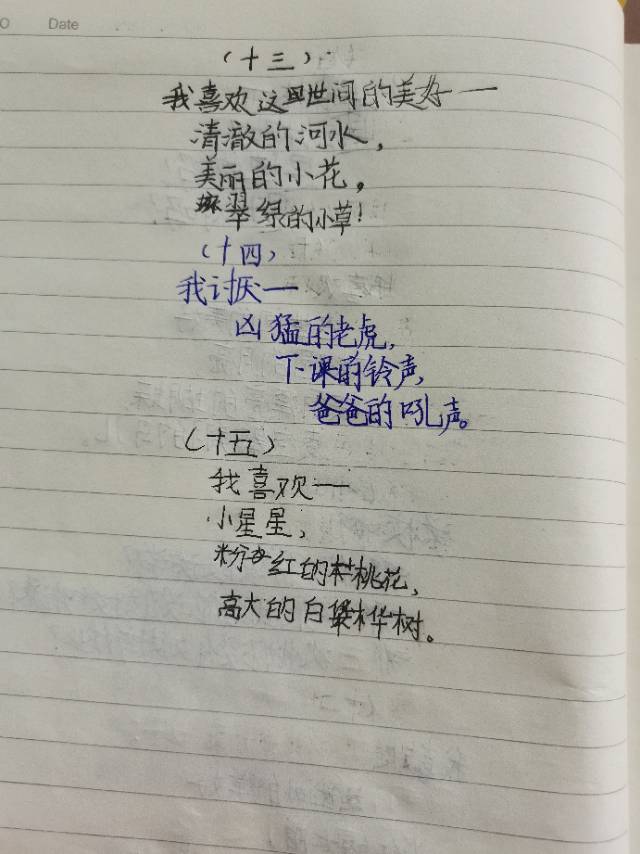 O Date
（十三）
我喜欢这世间的美好一
清澈的河水，
美丽的小花，
翠绿的小草！
（十四）
我讨厌一
凶猛的老虎，
下课的铃声，
爸爸的吼声。
（十五）
我喜欢一
小星星，
粉红的桃花，
高大的白桦树。